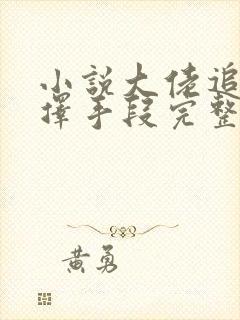 小說大佬追
擇手段完整
黃勇